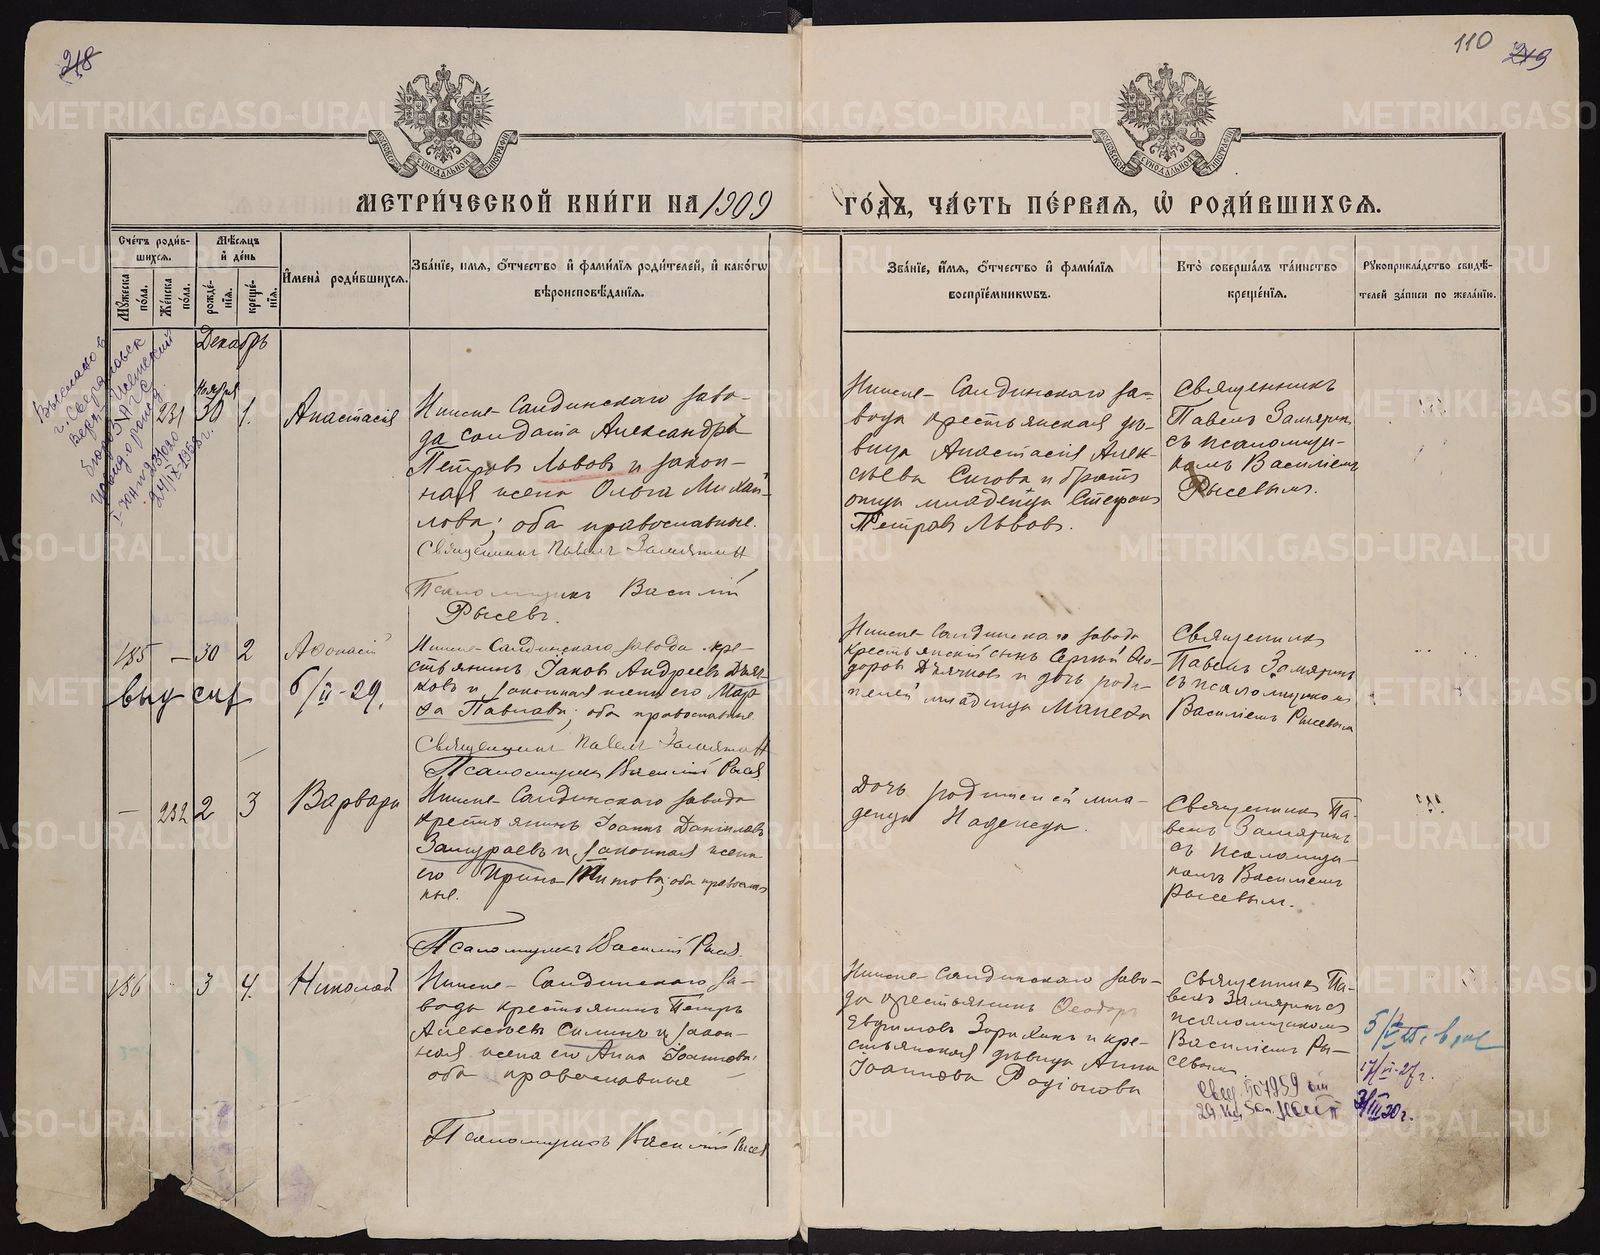 218
110
219
МЕТРИ́ЧЕСКОЙ КНИ́ГИ НА 1909
ГО́ДЪ, ЧА́СТЬ ПЕ́РВАЯ, Ѡ҆ РОДИ́ВШИХСЯ.
Сче́тъ роди́в-
шихся.
Мꙋ́жеска по́ла.
Же́нска по́ла.
Мѣ́сяцъ и҆ де́нь
рожде́-нїя.
креще́-нїя.
И҆мена̀ роди́вшихся.
Зва́нїе, и҆мя, ѻ҆́тчество и҆ фами́лїя роди́телей, и҆ како́гѡ
вѣроисповѣ́данїя.
Зва́нїе, и҆́мя, ѻ҆́тчество и҆ фами́лїя
воспрїе́мниковъ.
Кто̀ соверша́лъ та́инство
креще́нїя.
Рꙋкоприкла́дство свидѣ́-
телей за́писи по жела́нїю.
Декабрь
Ноября
231 30 1. Анастасія
Нижне-Салдинскаго заво-
да солдата Александръ
Петровъ Львовъ и закон-
ная жена Ольга Михай-
лова; оба православные.
Священникъ Павелъ Замятинъ
Псаломщикъ Василій
Рысевъ.
Нижне-Салдинскаго за-
вода крестьянская дѣ-
вица Анастасія Алек-
сѣева Сигова и братъ
отца младенца Стефанъ
Петровъ Львовъ.
Священникъ
Павелъ Замятинъ
съ псаломщи-
комъ Василіемъ
Рысевымъ.
185 — 30 2 Аѳонасій
выд. 6/II-29.
Нижне-Салдинскаго завода кре-
стьянинъ Іаковъ Андреевъ Дьяч-
ковъ и законная жена его Мар-
ѳа Павлова; оба православные
Священникъ Павелъ Замятинъ
Псаломщикъ Василій Рысев
Нижне-Салдинскаго завода
крестьянскій сынъ Сергѣй Ѳео-
доровъ Дьячковъ и дочь роди-
телей младенца Манеѳа
Священникъ
Павелъ Замятинъ
съ псаломщикомъ
Василіемъ Рысевымъ
— 232 2 3 Варвара
Нижне-Салдинскаго завода
крестьянинъ Іоаннъ Даніиловъ
Замураевъ и законная жена
его Ирина Титова; оба православ-
ные.
Псаломщикъ Василій Рысев
Дочь родителей мла-
денца Надежда.
Священникъ Па-
велъ Замятинъ
съ псаломщи-
комъ Василіемъ
Рысевымъ.
186 3 4. Николай
Нижне-Салдинскаго за-
вода крестьянинъ Петръ
Алексѣевъ Силинъ и закон-
ная жена его Анна Іоаннова;
оба православные
Псаломщикъ Василій Рысев
Нижне-Салдинскаго заво-
да крестьянинъ Ѳеодоръ
Евфимовъ Зорихинъ и кре-
стьянская дѣвица Анна
Іоаннова Родіонова
Священникъ Па-
велъ Замятинъ съ
псаломщикомъ
Василіемъ Ры-
севымъ.
17/VI-27 г.
3/III 30 г.